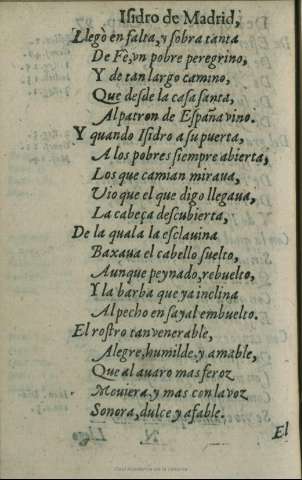 Isidro de Madrid,
Llegò en falta, y sobra tanta
De Fè, vn pobre peregrino,
Y de tan largo camino,
Que desde la casa santa,
Al patron de España vino.
Y quando Isidro a su puerta,
A los pobres siempre abierta,
Los que camian miraua,
Vio que el que digo llegaua,
La cabeça descubierta,
De la qual a la esclauina
Baxaua el cabello suelto,
Aunque peynado, rebuelto,
Y la barba que ya inclina
Al pecho en sayal embuelto.
El rostro tan venerable,
Alegre, humilde, y amable,
Que al auaro mas feroz
Mouiera, y mas con la voz
Sonora, dulce y afable.
El